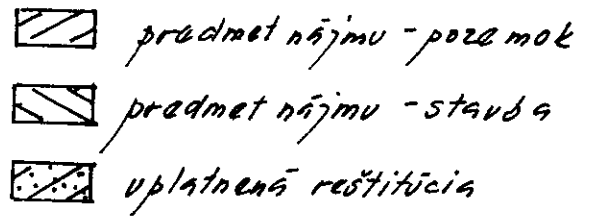 predmet nájmu - pozemok
predmet nájmu - stavba
uplatnená reštitúcia